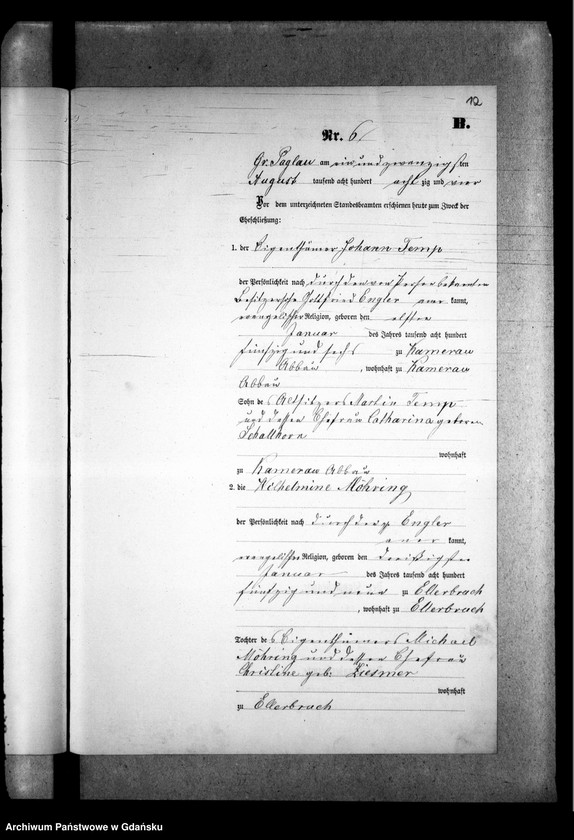 12
B.
Nr. 6
Gr. Paglau am ein und zwanzigsten
August tausend acht hundert achtzig und vier
Vor dem unterzeichneten Standesbeamten erschienen heute zum Zweck der
Eheschließung:
1. der Eigenthümer Johann Temp
der Persönlichkeit nach durch den von Person bekannten
Besitzer Gottfried Engler aner kannt,
evangelischer Religion, geboren den elften
Januar des Jahres tausend acht hundert
fünfzig und sechs zu Kamerau
Abbau, wohnhaft zu Kamerau
Abbau
Sohn des Altsitzers Martin Temp
und dessen Ehefrau Catharina geboren
Schallhorn
wohnhaft
zu Kamerau Abbau
2. die Wilhelmine Möhring
der Persönlichkeit nach durch Engler
aner kannt,
evangelischer Religion, geboren den dreißigsten
Januar des Jahres tausend acht hundert
fünfzig und neun zu Ellerbruch
, wohnhaft zu Ellerbruch
Tochter des Eigenthümers Michael
Möhring und dessen Ehefrau
Christine geb. Ziesmer
wohnhaft
zu Ellerbruch
Archiwum Państwowe w Gdańsku